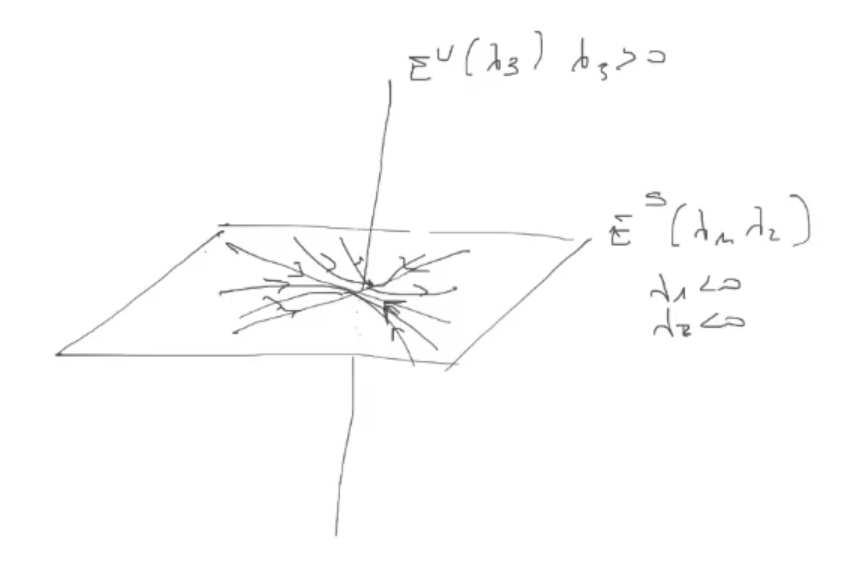 E^U(λ_3) λ_3>0
E^S(λ_1 λ_2)
λ_1<0
λ_2<0